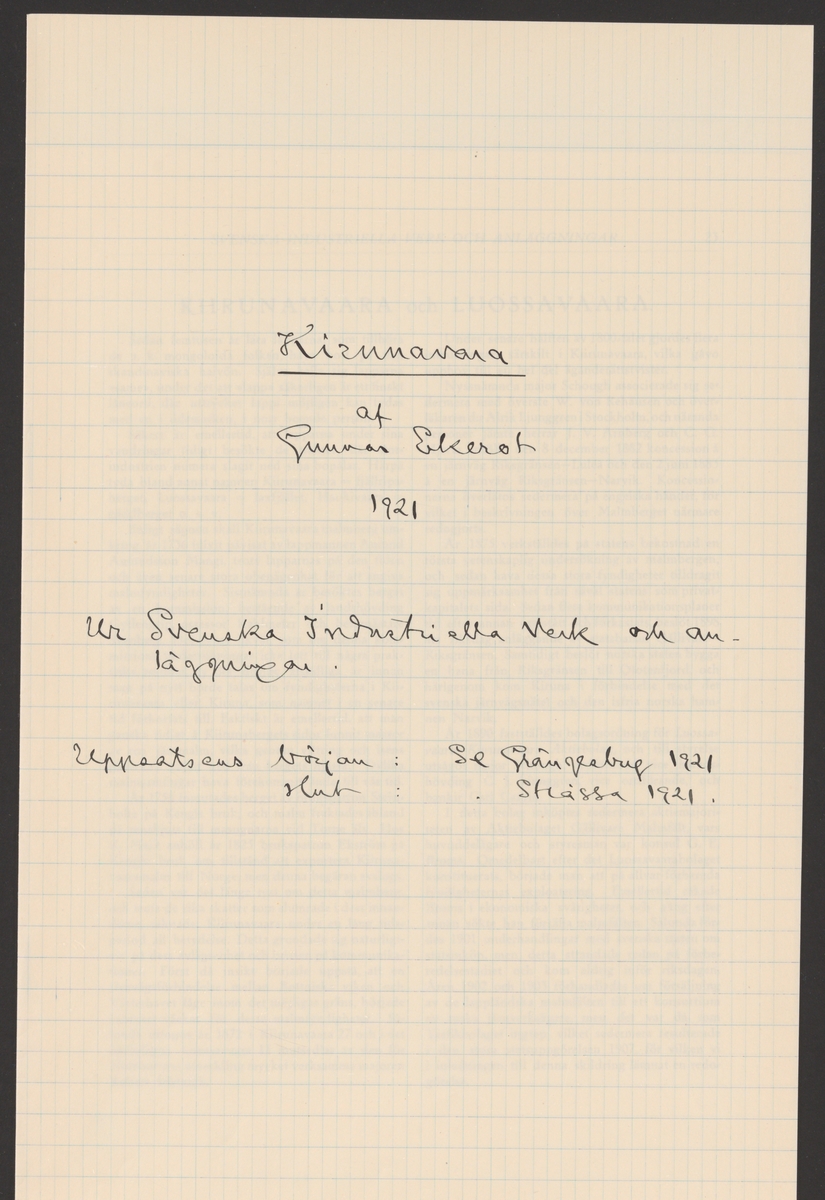 Kirunavara
af
Gunnar Ekerot
1921
Ur Svenska Industriella Verk och an-
läggningar.
Uppsatsens början : Se Grängesberg 1921
slut : . Stråssa 1921.